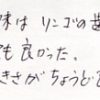 味は リンゴの
も良かった。
きさがちょうど